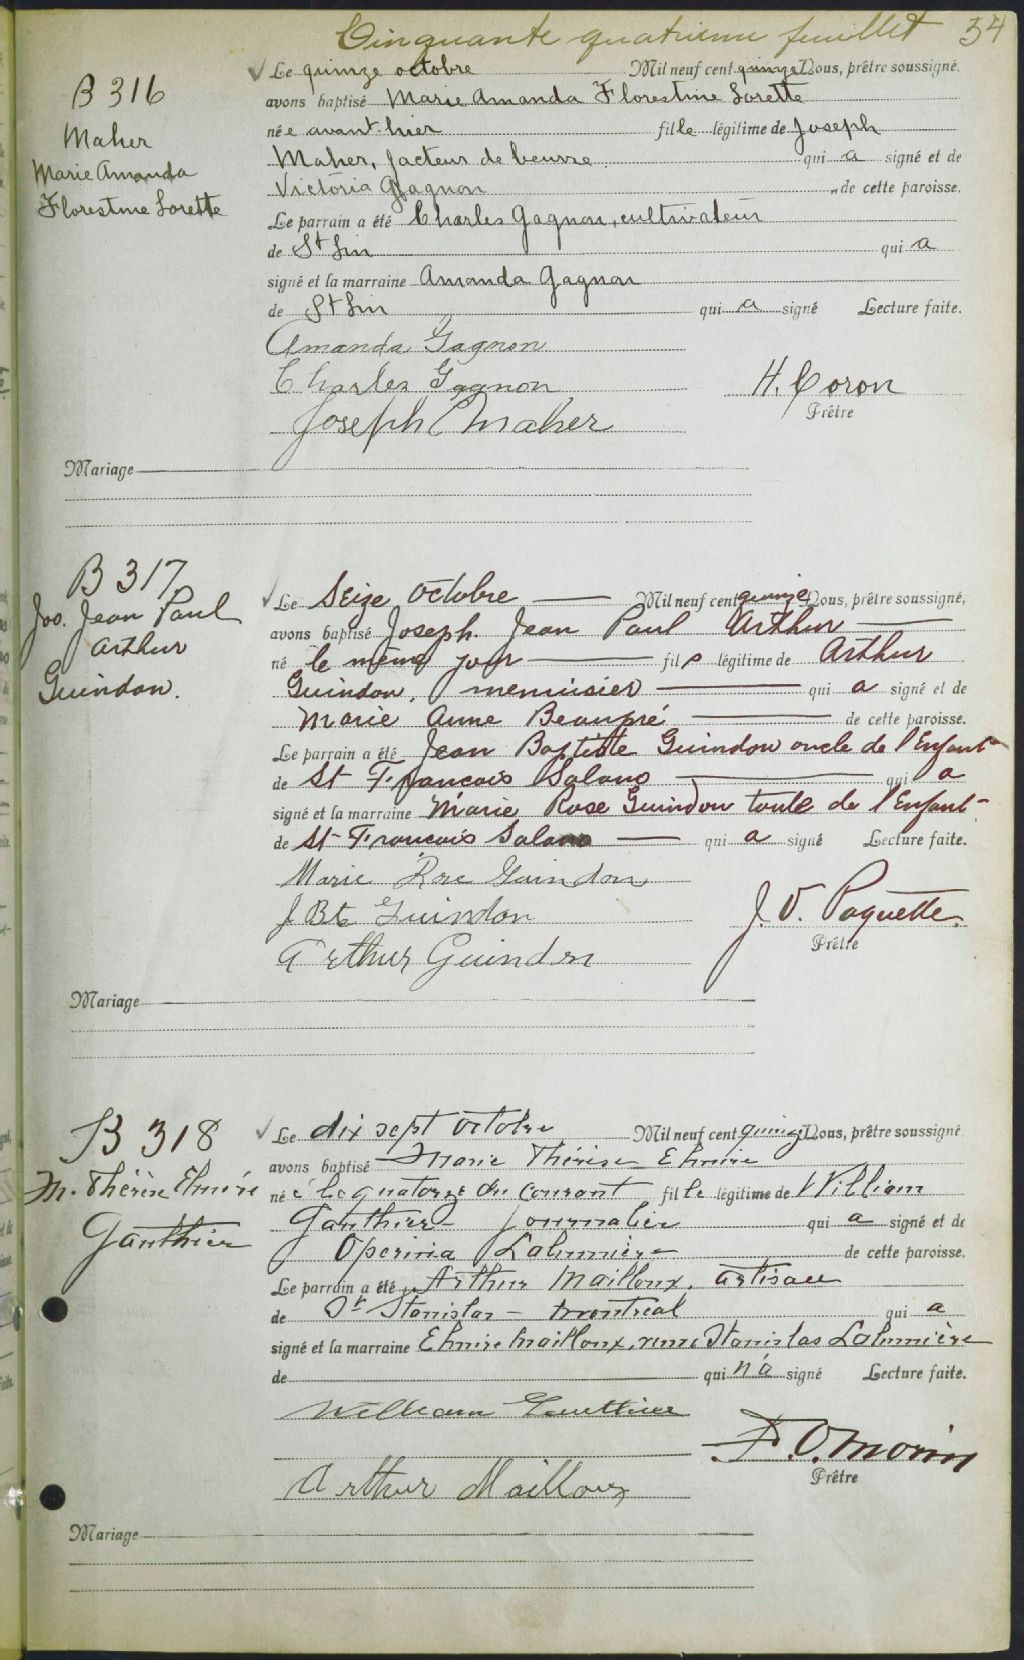 Cinquante quatrieme feuillet 54
B 316
Maher
Marie Amanda
Florestine Lorette
Le quinze octobre Mil neuf cent quinze Nous, prêtre soussigné,
avons baptisé Marie Amanda Florestine Lorette
née avant-hier fille légitime de Joseph
Maher, facteur de beurre qui a signé et de
Victoria Gagnon de cette paroisse.
Le parrain a été Charles Gagnon, cultivateur
de St Lin qui a
signé et la marraine Amanda Gagnon
de St Lin qui a signé Lecture faite.
Amanda Gagnon
Charles Gagnon
H. Coron
Prêtre
Joseph Maher
Mariage
B 317
Jos. Jean Paul
Arthur
Guindon.
Le Seize Octobre Mil neuf cent quinze Nous, prêtre soussigné,
avons baptisé Joseph Jean Paul Arthur
né le même jour fils légitime de Arthur
Guindon, menuisier qui a signé et de
Marie Anne Beaupré de cette paroisse.
Le parrain a été Jean Baptiste Guindon oncle de l'Enfant
de St François Solano qui a
signé et la marraine Marie Rose Guindon tante de l'Enfant
de St François Solano qui a signé Lecture faite.
Marie Rose Guindon
J Bte Guindon
J. V. Paquette.
Prêtre
Arthur Guindon
Mariage
B 318
M. Thérèse Elmire
Gauthier
Le dix sept octobre Mil neuf cent quinze Nous, prêtre soussigné,
avons baptisé Marie Thérèse Elmire
née le quatorze du courant fille légitime de William
Gauthier journalier qui a signé et de
Lalumière de cette paroisse.
Le parrain a été Arthur Mailloux, artisan
de St Stanislas - Montréal qui a
signé et la marraine Elmire Mailloux, Stanislas Lalumière
de qui n'a signé Lecture faite.
William Gauthier
F. O. Morin
Prêtre
Arthur Mailloux
Mariage